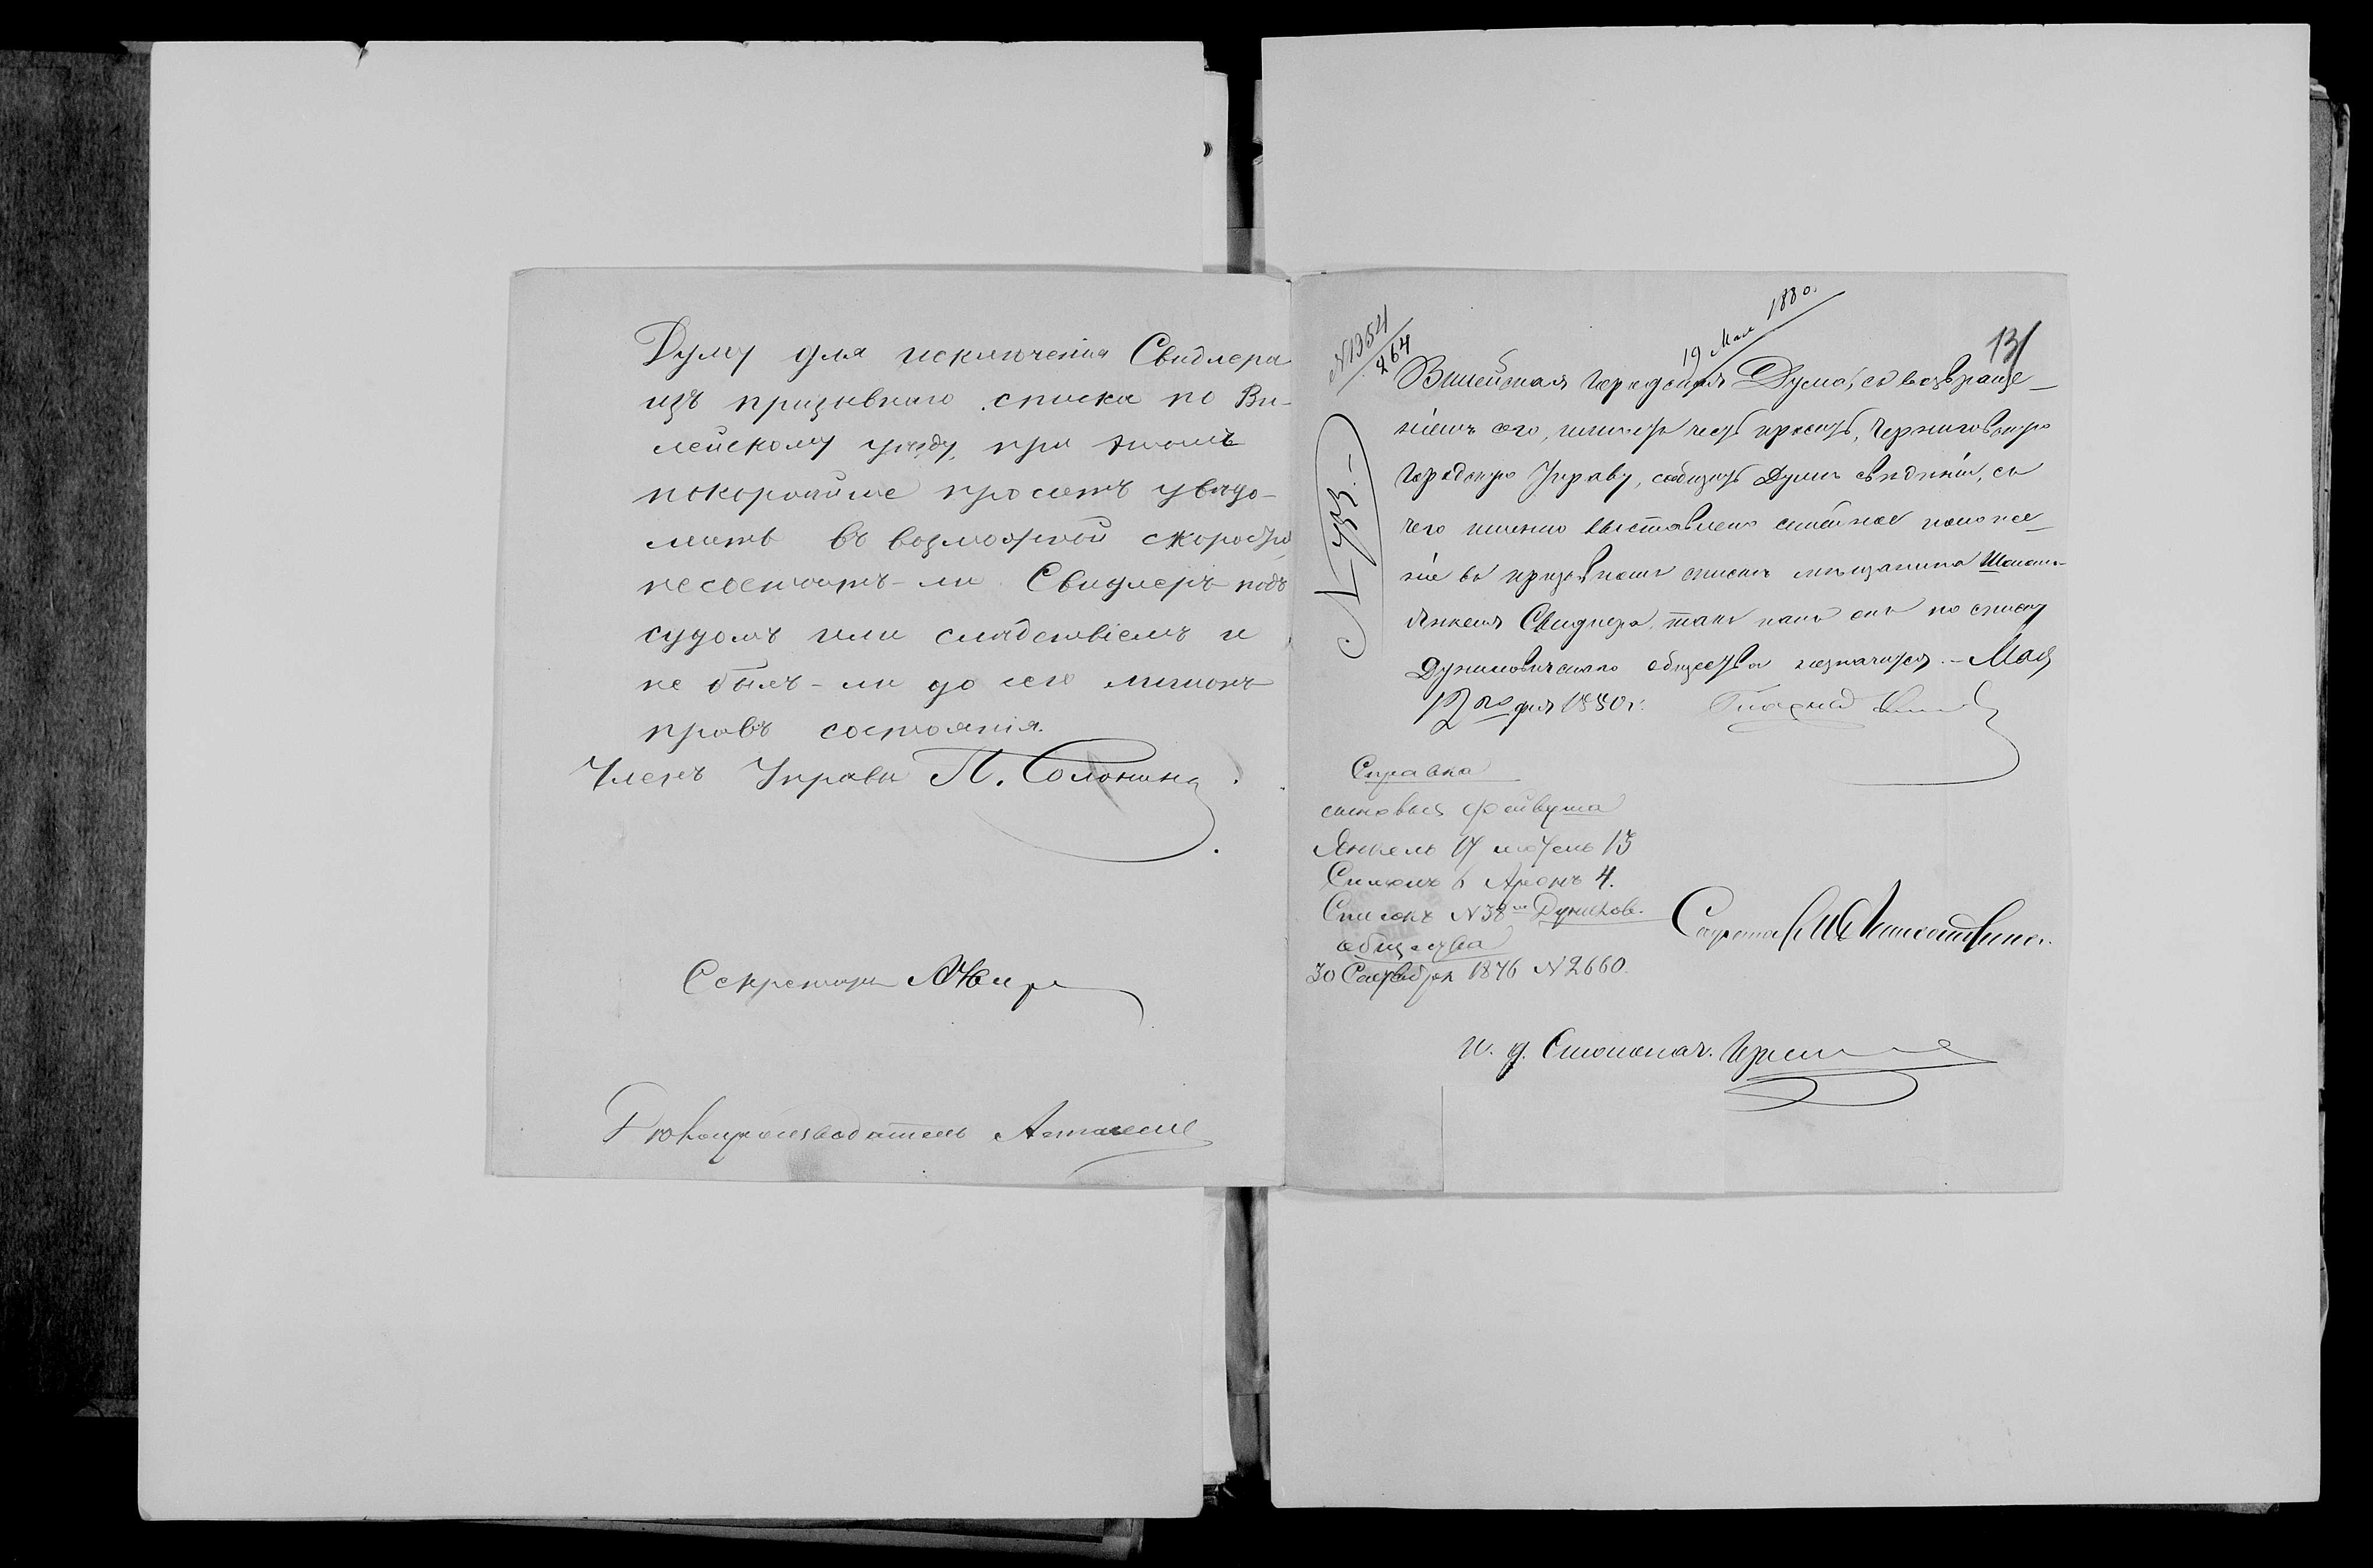 Думу для исключенія Свидлера
изъ призывнаго списка по Ви-
лейскому уѣзду, при этомъ
покорнѣйше проситъ увѣдо-
мить въ возможной скорости,
несостоитъ-ли Свидлеръ подъ
судомъ или слѣдствіемъ и
не былъ-ли до сего лишонъ
правъ состоянія.
Членъ Управы П. Солонина.
Секретарь
Дѣлопроизводитель
N 1354
264
19 Мая 1880.
131
N 733.
Вилейская Городская Дума, съ возвраще-
ніемъ сего, имѣетъ честь просить, Черниговскую
Городскую Управу, сообщить Думѣ свѣдѣніе, съ
чего именно выставлено семейное положе-
ніе въ призывномъ списке мѣщанина
Янкеля Свидлера, такъ какъ онъ по списку
Дуниловичскаго общества незначится.- Мая
12 го дня 1880 г.
Справка
сыновья Файвуша
Янкель 17
Симонъ 6 Аронъ 4.
Списокъ N 38 Дунилов.
общества
30 Сентября 1876 N 2660.
Секретарь
И. д. Столонач.